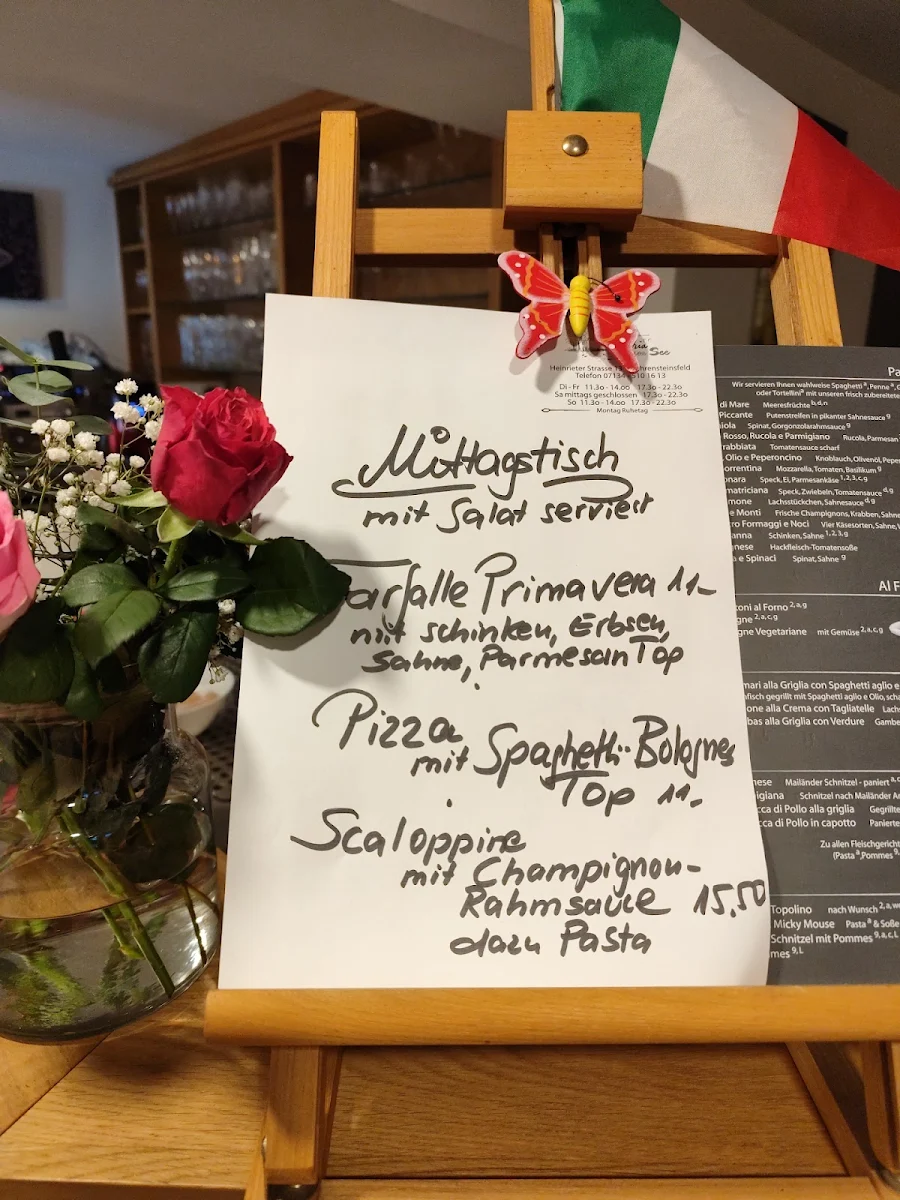 See
Telefon 07134
510 16 13
Di - Fr 11.30 - 14.00 17.30 - 22.30
Sa mittags geschlossen 17.30 - 22.30
So 11.30 - 14.00 17.30 - 22.30
Montag Ruhetag
Mittagstisch
mit Salat serviert
Farfalle Primavera 11.-
mit schinken, Erbsen,
Sahne, Parmesan Top
Pizza
mit Spaghetti-Bolognes
Top 11.-
Scaloppine
mit Champignon-
Rahmsauce 15,50
dazu Pasta
Pa
Wir servieren Ihnen wahlweise Spaghetti a, Penne a, G
oder Tortellini a mit unseren frisch zubereitete
di Mare Meeresfrüchte b,d,n
Piccante Putenstreifen in pikanter Sahnesauce g
iola Spinat, Gorgonzolarahmsauce g
Rosso, Rucola e Parmigiano Rucola, Parmesan
rabbiata Tomatensauce scharf
Olio e Peperoncino Knoblauch, Olivenöl, Pepe
orrentina Mozzarella, Tomaten, Basilikum g
onara Speck, Ei, Parmesankäse 1,2,3,c,g
matriciana Speck, Zwiebeln, Tomatensauce d,g
mone Lachsstückchen, Sahnesauce d,g
e Monti Frische Champignons, Krabben, Sahne
ro Formaggi e Noci Vier Käsesorten, Sahne,
anna Schinken, Sahne 1,2,3,g
gnese Hackfleisch-Tomatensoße
e Spinaci Spinat, Sahne g
Al F
toni al Forno 2,a,g
gne 2,a,c,g
gne Vegetariane mit Gemüse 2,a,c,g
mari alla Griglia con Spaghetti aglio e
fisch gegrillt mit Spaghetti aglio e Olio, scha
one alla Crema con Tagliatelle Lachs
bas alla Griglia con Verdure Gambe
nese Mailänder Schnitzel - paniert a,c
igiana Schnitzel nach Mailänder Ar
cca di Pollo alla griglia Gegrillte
cca di Pollo in capotto Panierte
Zu allen Fleischgericht
(Pasta a, Pommes 9,
Topolino nach Wunsch 2,a,w
Micky Mouse Pasta a & Soße
Schnitzel mit Pommes 9,a,c,L
mes 9,L